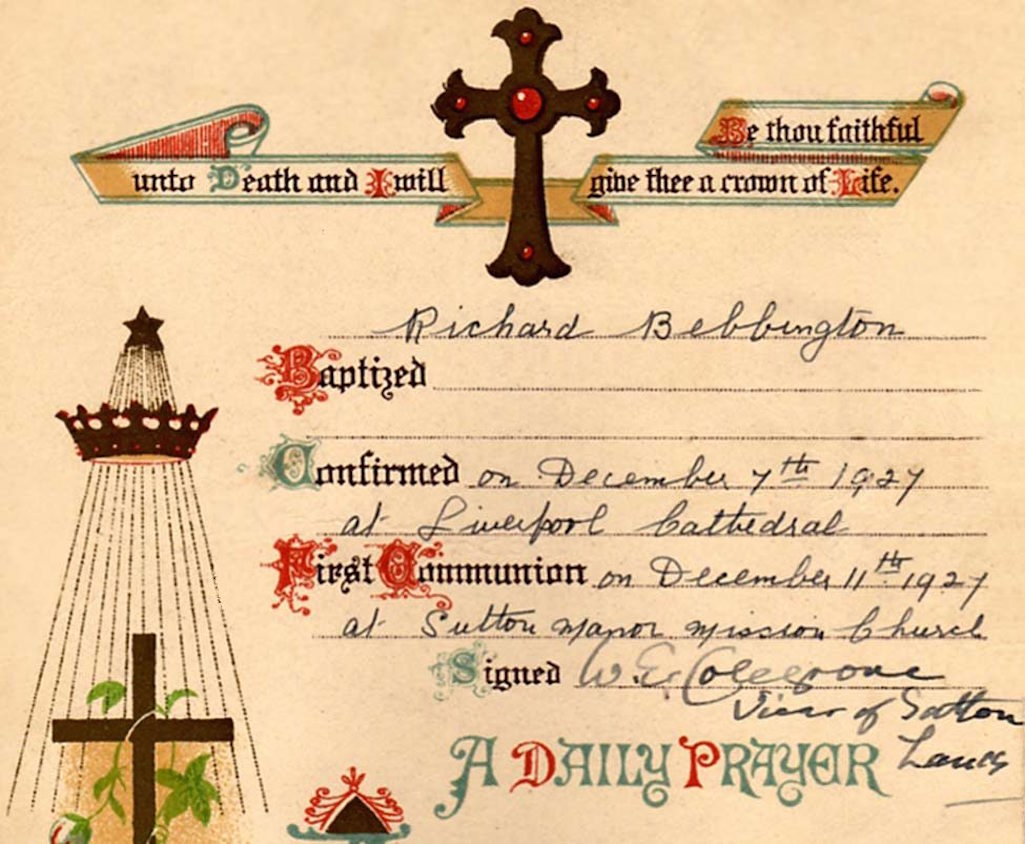 Be thou faithful
unto Death and I will give thee a crown of Life.
Richard Bebbington
Baptized
Confirmed on December 7th 1927
at Liverpool Cathedral
First Communion on December 11th 1927
at Sutton Manor Mission Church
Signed W. E. Colegrove
Vicar of Sutton
Lancs
A DAILY PRAYER